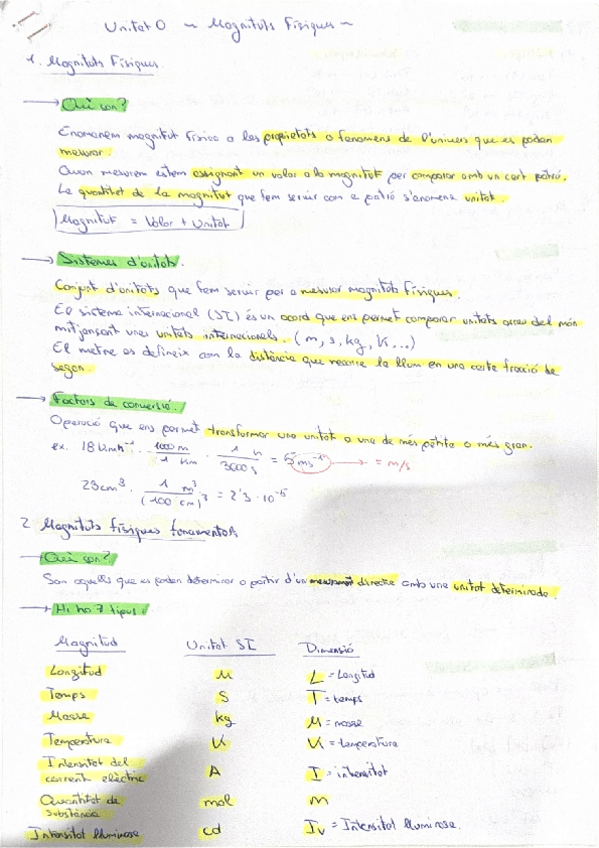 Unitat 0 ~ Magnituts Físiques ~
1. Magnituts Físiques.
→ Què son?
Enomenem magnitut física a les propietats o fenomens de l'univers que es poden
mesurar.
Quan mesurem estem assignant un valor a la magnitut per comparar amb un cert patró.
La quantitat de la magnitut que fem servir com a patró s'anomena unitat.
Magnitut = Valor + Unitat
→ Sistemes d'unitats.
Conjunt d'unitats que fem servir per a mesurar magnituts físiques.
El sistema internacional (SI) és un acord que ens permet comparar unitats arreu del món
mitjançant unes unitats internacionals. (m, s, kg, K...)
El metre es defineix com la distància que recorre la llum en una certa fracció de
segon.
→ Factors de conversió.
Operació que ens permet transformar una unitat a una de més petita o més gran.
ex. 18 km h⁻¹ · 1000 m / 1 km · 1 h / 3600 s = 5 ms⁻¹ → = m/s
23 cm³ · 1 m³ / (100 cm)³ = 2'3 · 10⁻⁵
2. Magnituts físiques fonamentals
→ Què son?
Son aquelles que es poden determinar a partir d'un directe amb una unitat determinada.
→ Hi ha 7 tipus:
Magnitud Unitat SI Dimensió
Longitud M L = Longitud
Temps S T = temps
Massa kg M = massa
Temperatura K K = temperatura
Intensitat del
corrent elèctric A I = intensitat
Quantitat de
substància mol m
Intensitat lluminosa cd Iv = Intensitat lluminosa.